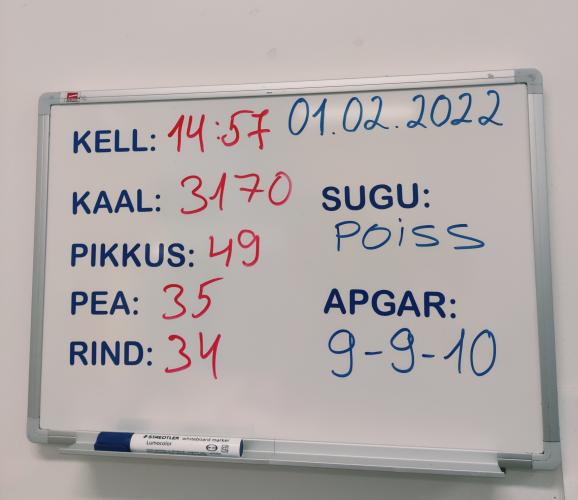 KELL: 14:57 01.02.2022
KAAL: 3170
SUGU:
POISS
PIKKUS: 49
PEA: 35
APGAR:
RIND: 34
9-9-10
STAEDTLER whiteboard marker
Lumocolor